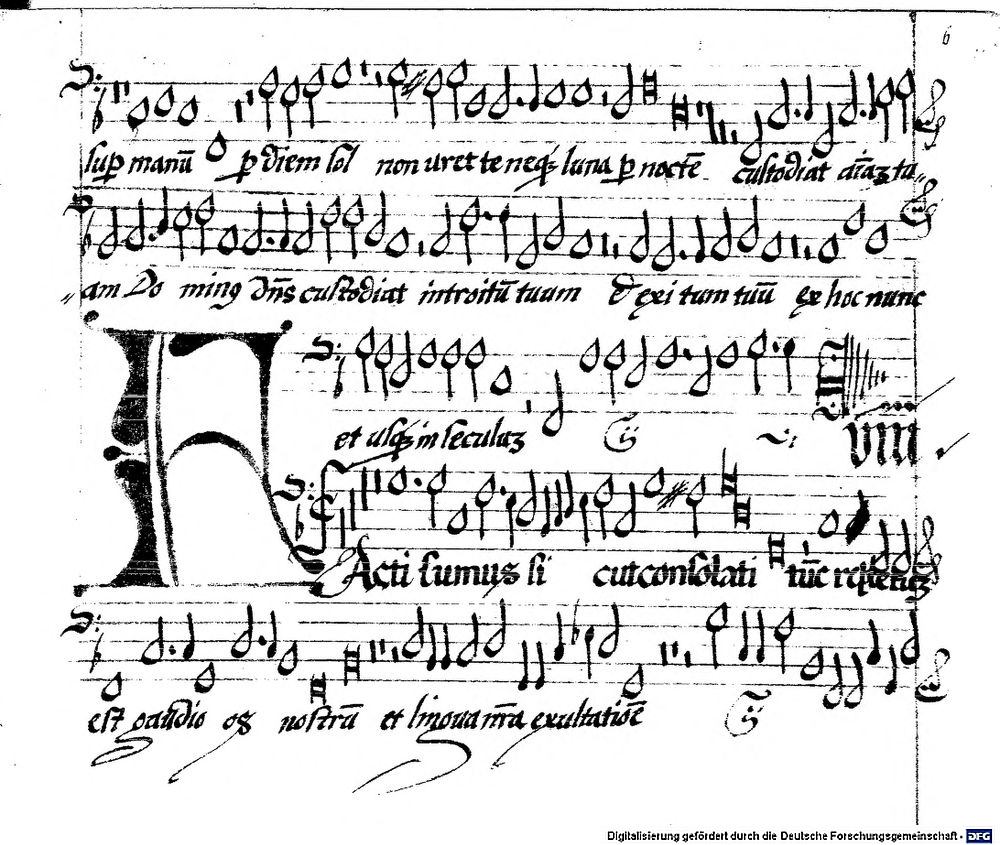 6
sup manū p diem sol non uret te neqȝ luna p noctē custodiat aīaȝ tu
am Do minꝰ dn̄s custodiat introitū tuum & exi tum tuū ex hoc nunc
et usqȝ in seculuȝ
VIII
FActi sumus si cut consolati tūc repletuȝ
est gaudio os nostrū et lingua nr̄a exultatiōe
Digitalisierung gefördert durch die Deutsche Forschungsgemeinschaft - DFG